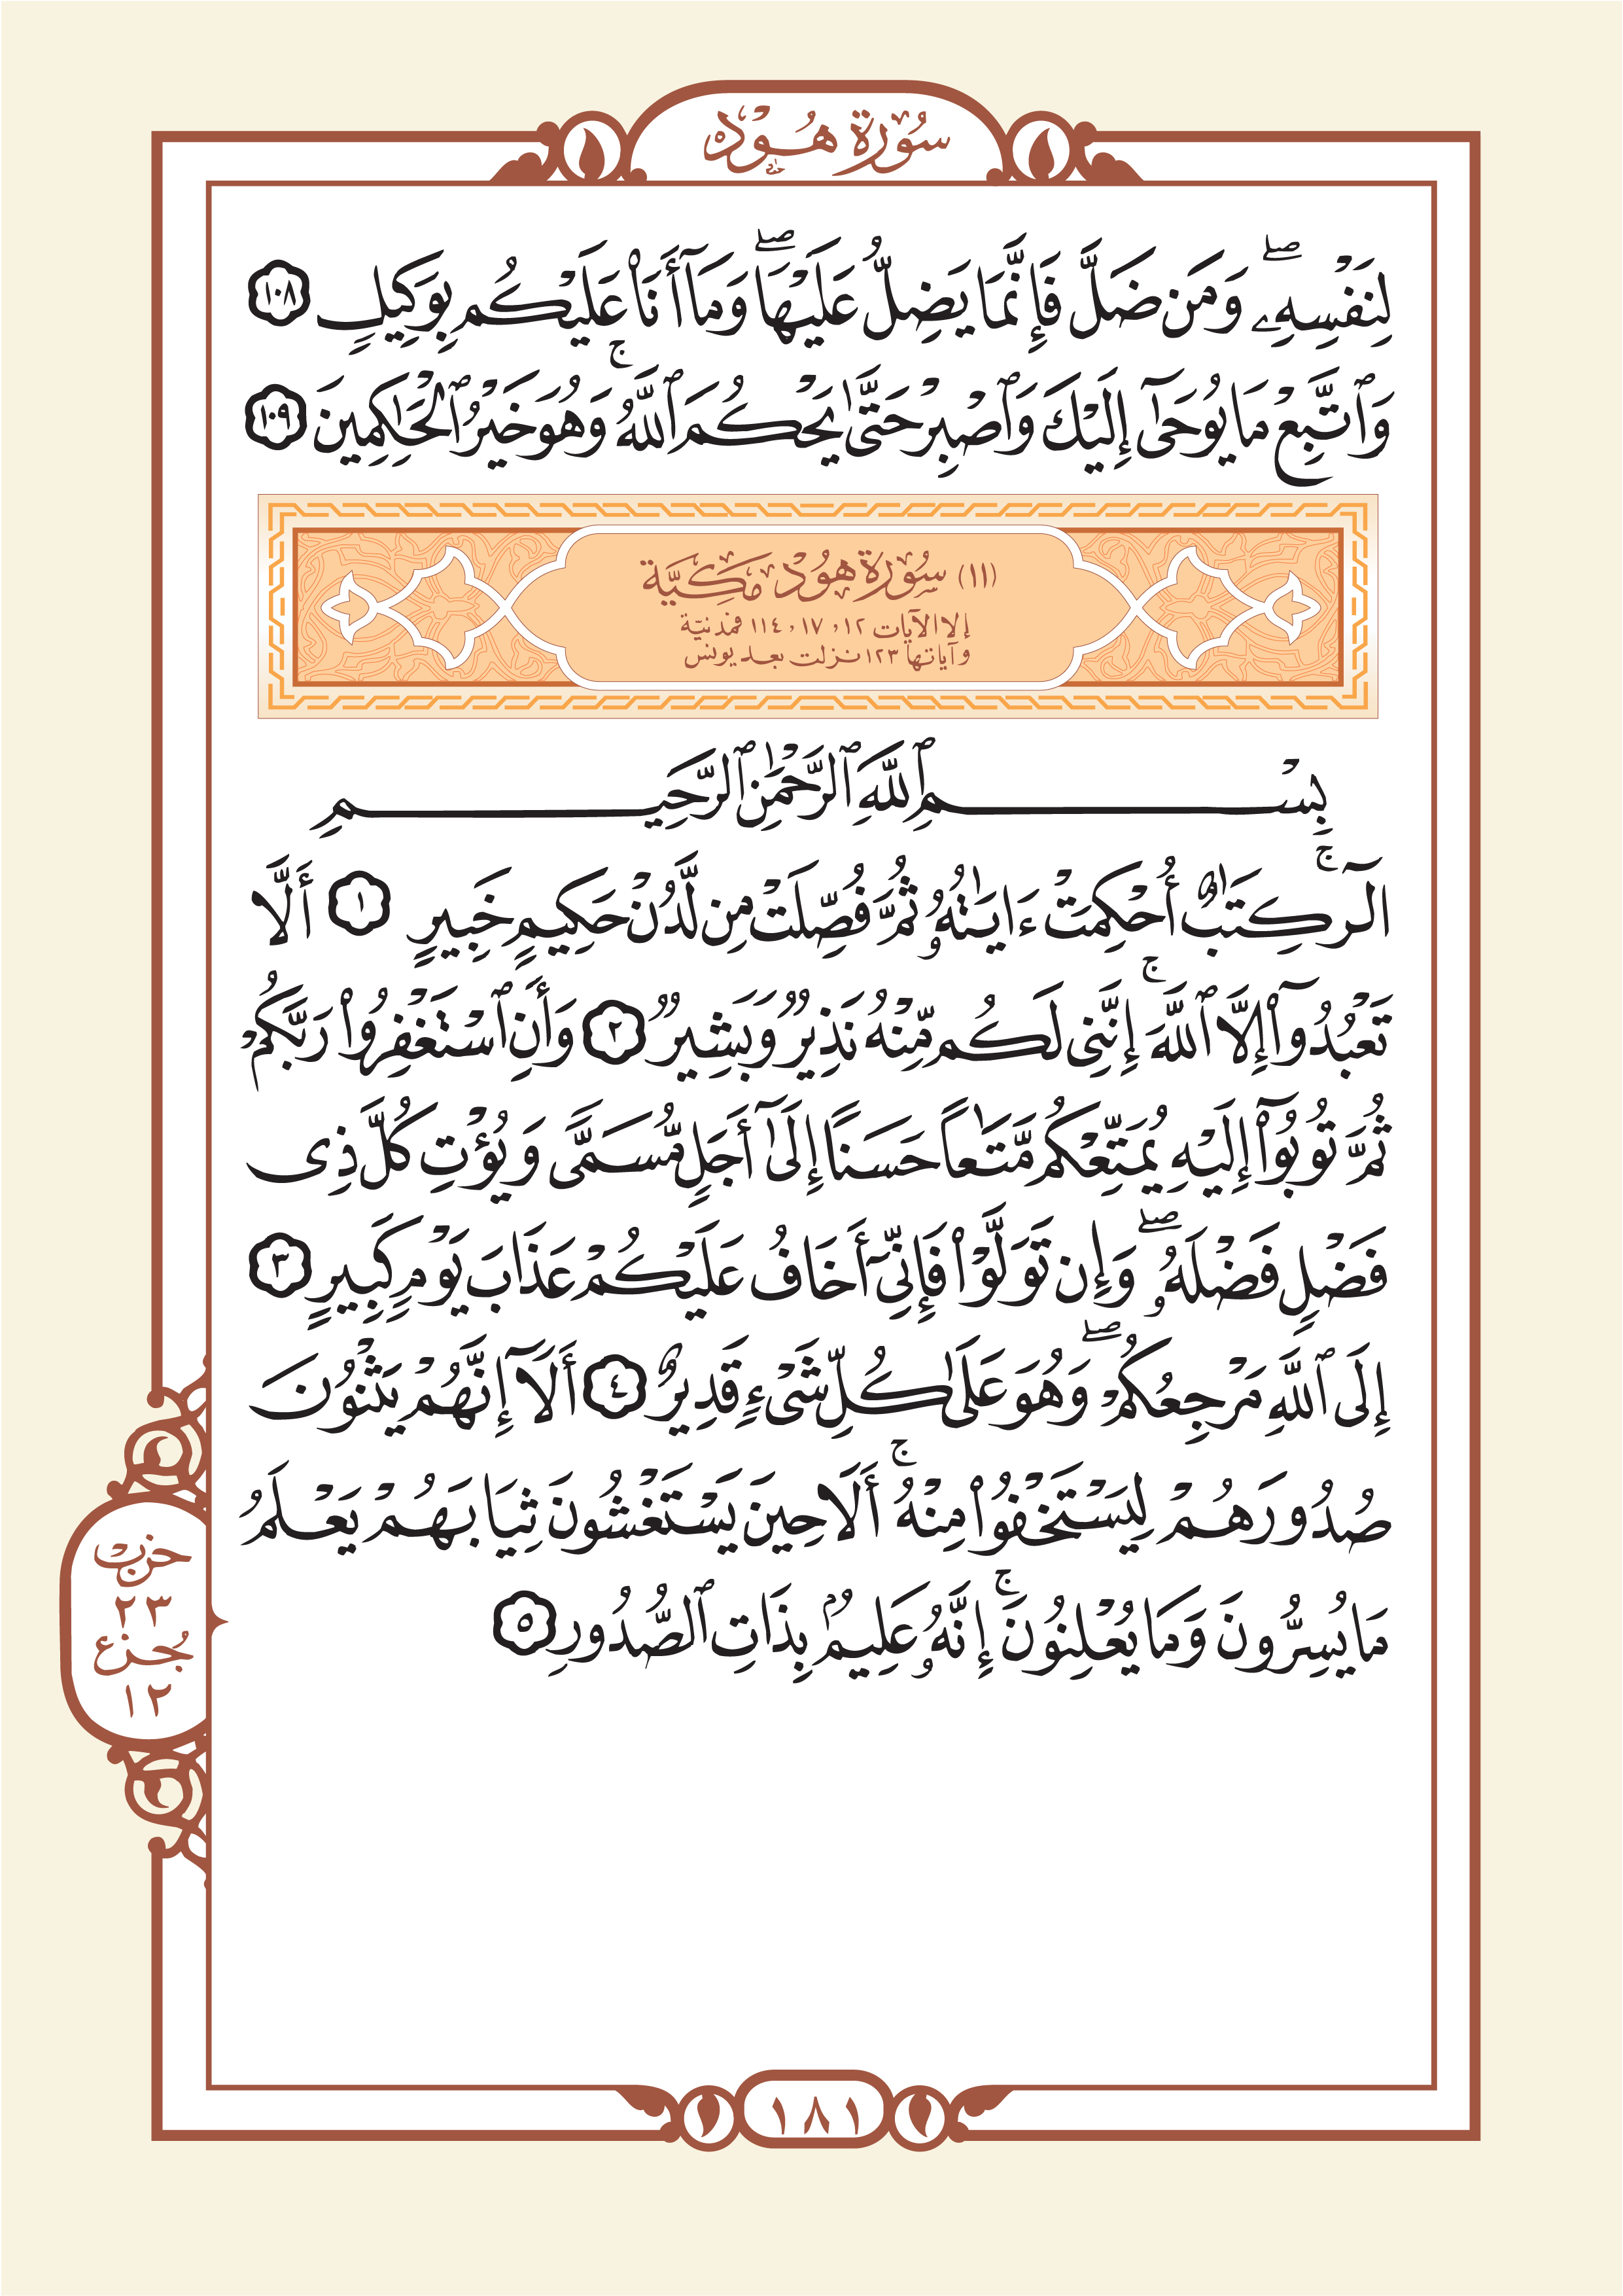 سُورَةُ هُودٍ
لِنَفۡسِهِۦۖ وَمَن ضَلَّ فَإِنَّمَا يَضِلُّ عَلَيۡهَاۖ وَمَآ أَنَا۠ عَلَيۡكُم بِوَكِيلٍ ١٠٨
وَٱتَّبِعۡ مَا يُوحَىٰٓ إِلَيۡكَ وَٱصۡبِرۡ حَتَّىٰ يَحۡكُمَ ٱللَّهُۚ وَهُوَ خَيۡرُ ٱلۡحَٰكِمِينَ ١٠٩
(١١) سُورَةُ هُودٍ مَكِّيَّة
إلا الآيات ١٢، ١٧، ١١٤ فمدنيّة
وآياتها ١٢٣ نزلت بعد يونس
بِسۡمِ ٱللَّهِ ٱلرَّحۡمَٰنِ ٱلرَّحِيمِ
الٓرۚ كِتَٰبٌ أُحۡكِمَتۡ ءَايَٰتُهُۥ ثُمَّ فُصِّلَتۡ مِن لَّدُنۡ حَكِيمٍ خَبِيرٍ ١ أَلَّا
تَعۡبُدُوٓاْ إِلَّا ٱللَّهَۚ إِنَّنِى لَكُم مِّنۡهُ نَذِيرٞ وَبَشِيرٞ ٢ وَأَنِ ٱسۡتَغۡفِرُواْ رَبَّكُمۡ
ثُمَّ تُوبُوٓاْ إِلَيۡهِ يُمَتِّعۡكُم مَّتَٰعًا حَسَنًا إِلَىٰٓ أَجَلٖ مُّسَمّٗى وَيُؤۡتِ كُلَّ ذِى
فَضۡلٖ فَضۡلَهُۥۖ وَإِن تَوَلَّوۡاْ فَإِنِّىٓ أَخَافُ عَلَيۡكُمۡ عَذَابَ يَوۡمٖ كَبِيرٍ ٣
إِلَى ٱللَّهِ مَرۡجِعُكُمۡۖ وَهُوَ عَلَىٰ كُلِّ شَىۡءٖ قَدِيرٌ ٤ أَلَآ إِنَّهُمۡ يَثۡنُونَ
صُدُورَهُمۡ لِيَسۡتَخۡفُواْ مِنۡهُۚ أَلَا حِينَ يَسۡتَغۡشُونَ ثِيَابَهُمۡ يَعۡلَمُ
مَا يُسِرُّونَ وَمَا يُعۡلِنُونَۚ إِنَّهُۥ عَلِيمُۢ بِذَاتِ ٱلصُّدُورِ ٥
حزب
٢٣
جُزء
١٢
١٨١